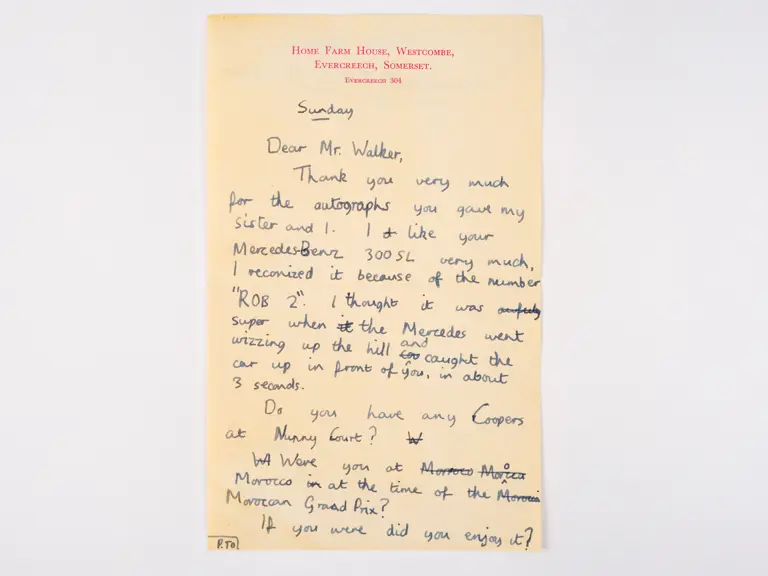 Home Farm House, Westcombe,
Evercreech, Somerset.
Evercreech 304
Sunday
Dear Mr. Walker,
Thank you very much
for the autographs you gave my
sister and I. I like your
Mercedes-Benz 300SL very much,
I reconized it because of the number
"ROB 2". I thought it was awfuly
super when it the Mercedes went
wizzing up the hill and caught the
car up in front of you, in about
3 seconds.
Do you have any Coopers
at Nunny Court? W
Were you at Morroco Morocca
Morocco in at the time of the
Moroccan Grand Prix?
If you were did you enjoy it?
P.TO